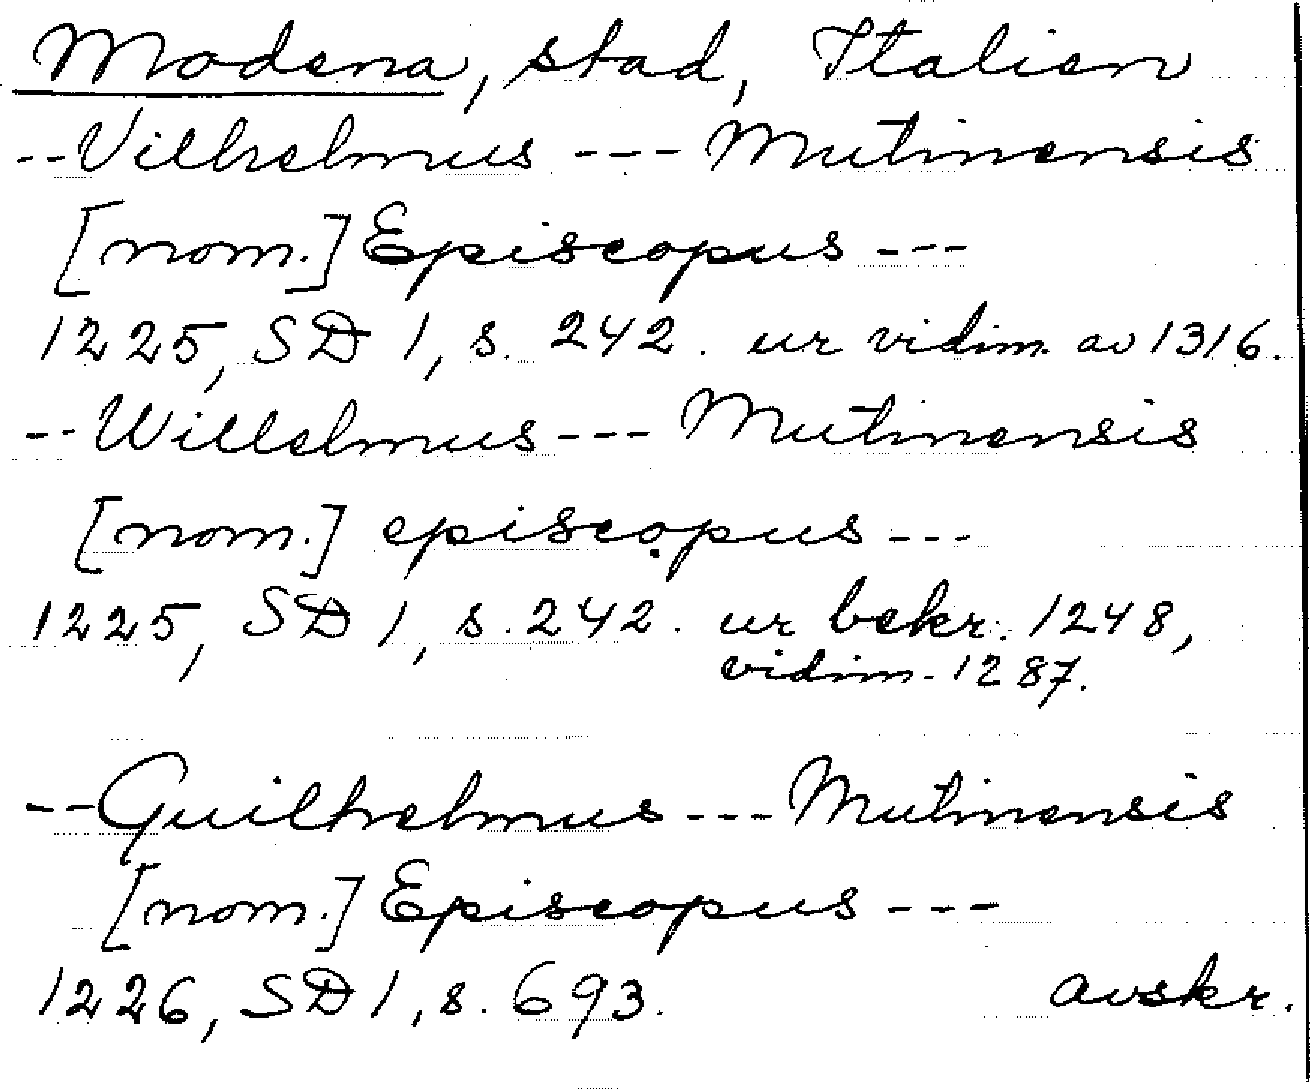 Modena, stad, Italien
--Vilhelmus --- Mutinensis
[nom.] Episcopus ---
1225, SD 1, s. 242. ur vidim. av 1316.
--Willelmus --- Mutinensis
[nom.] episcopus ---
1225, SD 1, s. 242. ur bekr. 1248,
vidim. 1287.
--Guilhelmus --- Mutinensis
[nom.] Episcopus ---
1226, SD 1, s. 693. avskr.